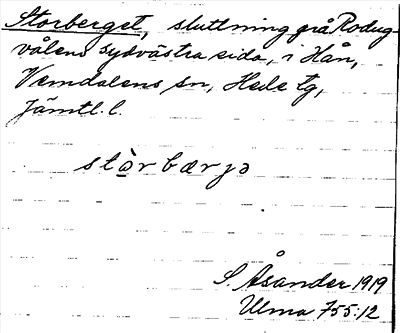 Storberget, sluttning på Rodug-
vålens sydvästra sida, i Hån,
Vemdalens sn, Hede tg,
Jämtl. l.
stòrbærjə
S. Åsander 1919
Ulma 755:12